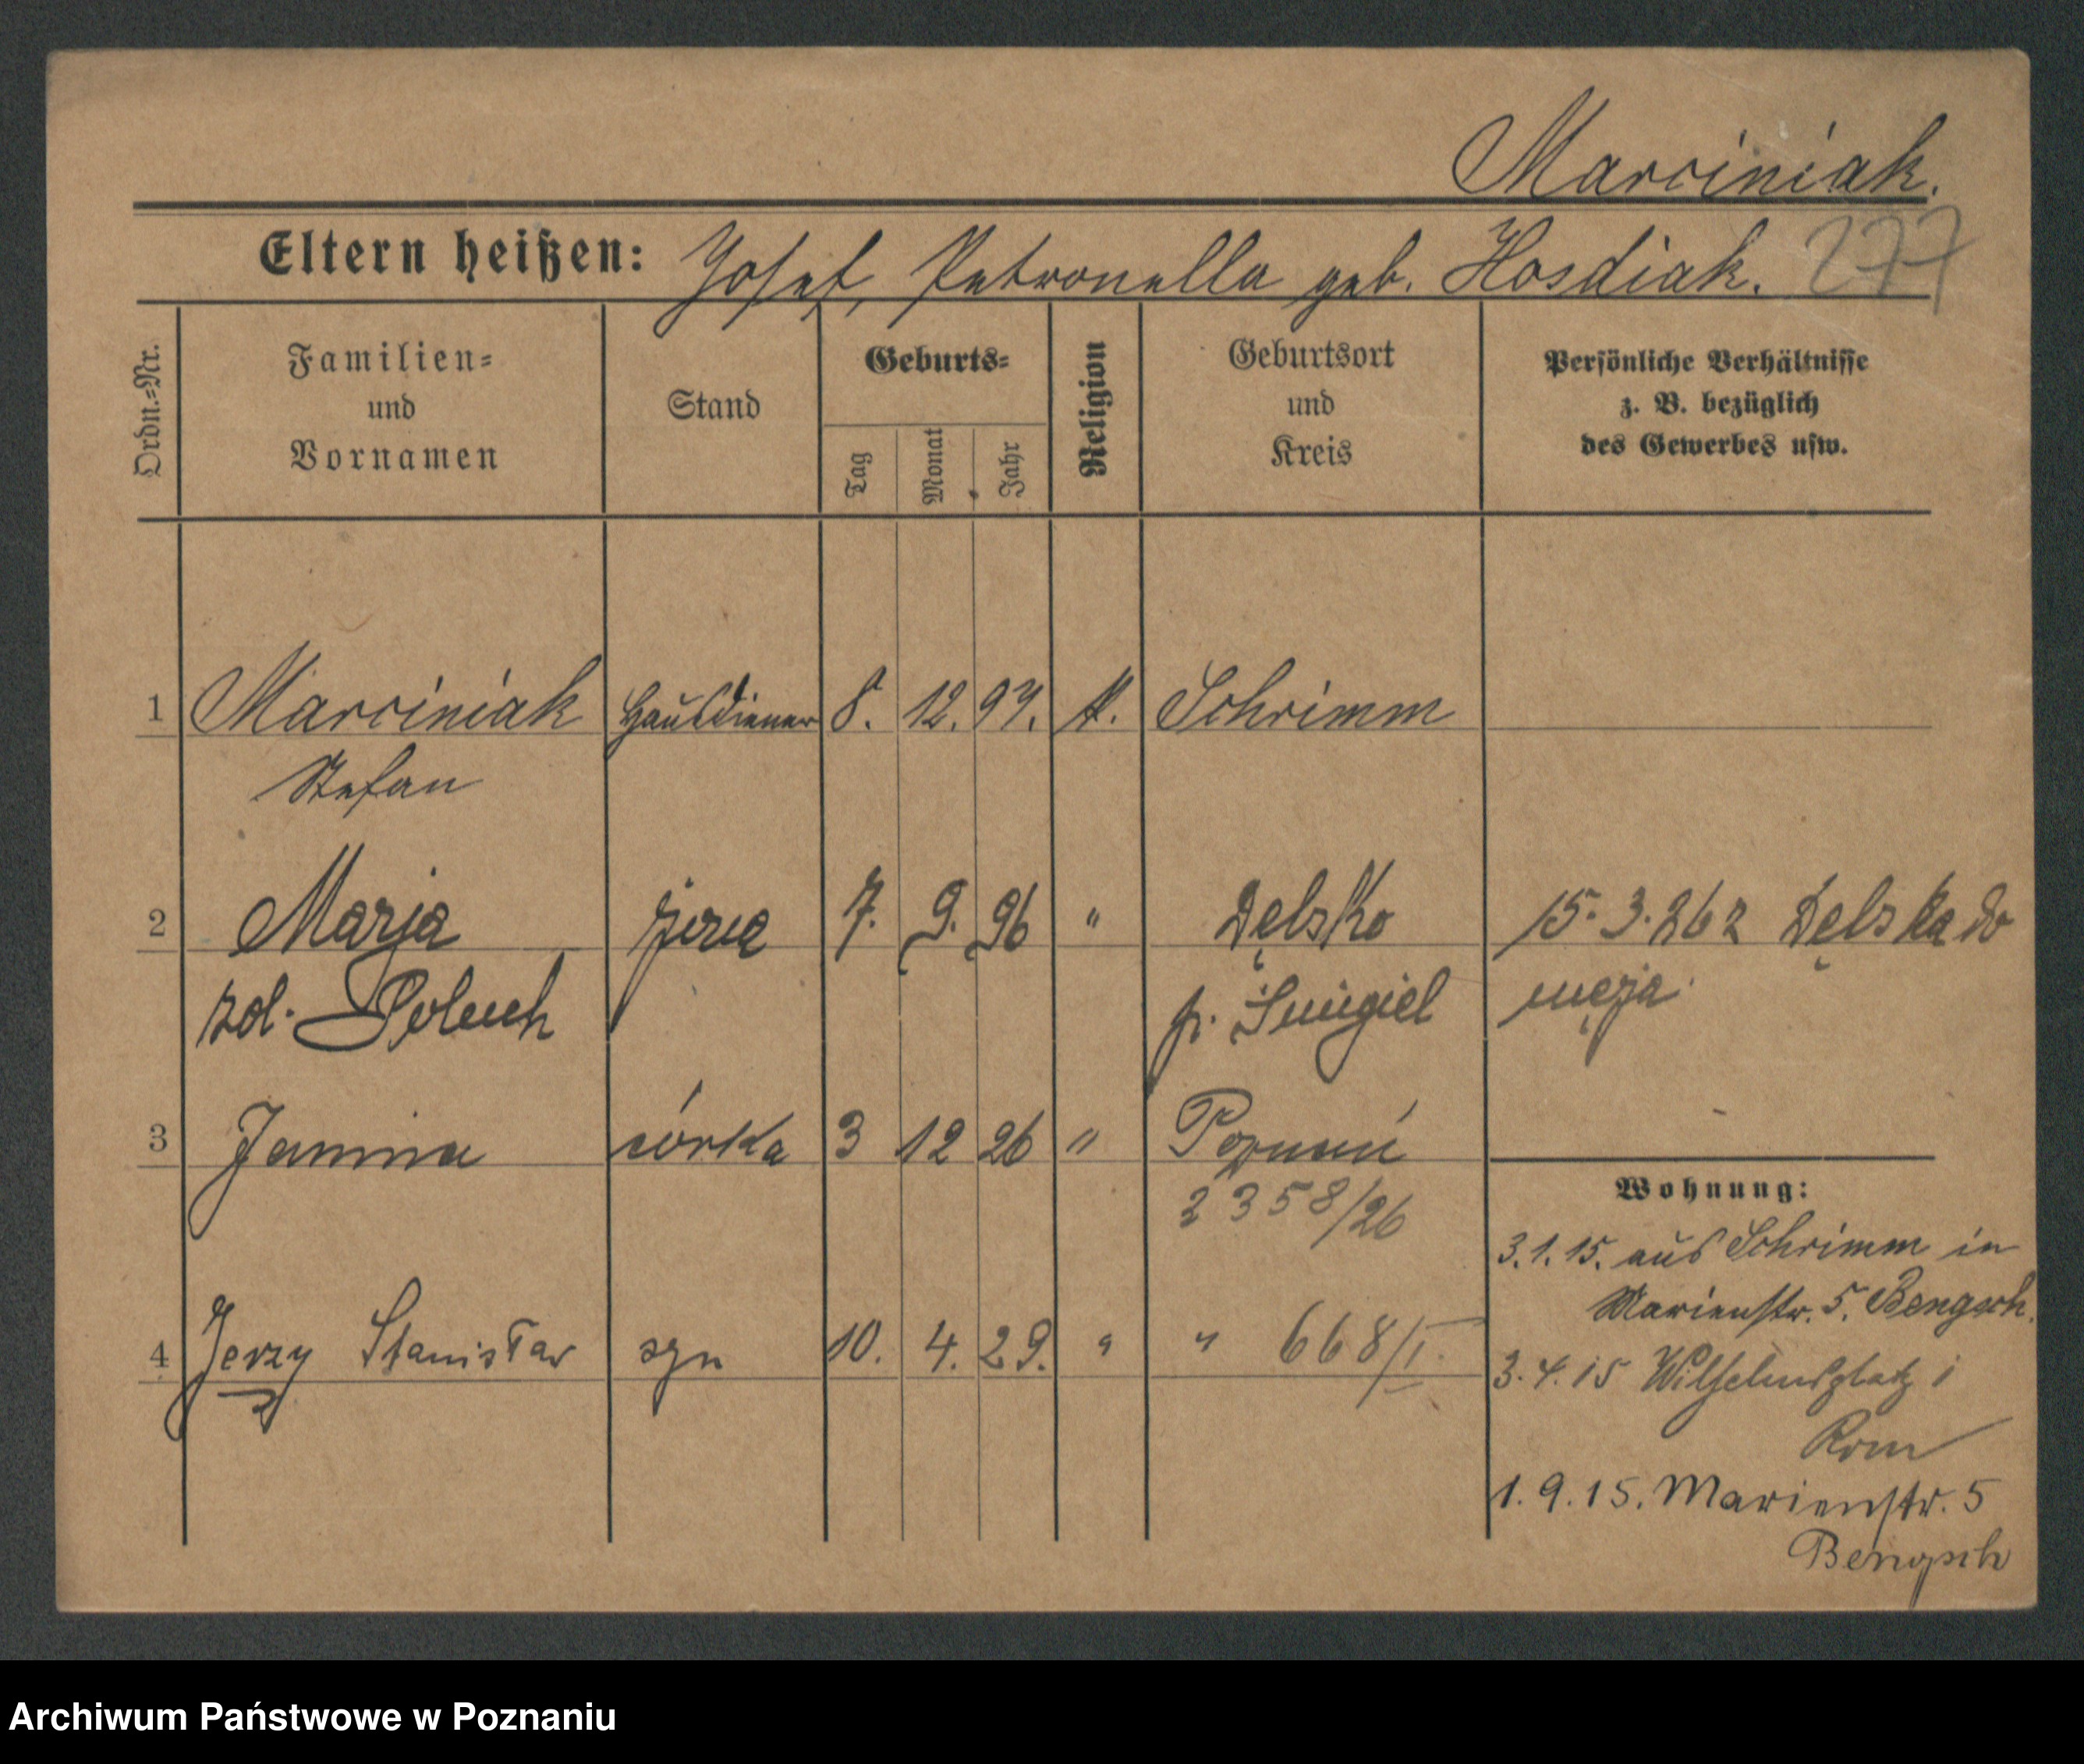 Marciniak.
Eltern heißen: Josef, Petronella geb. Hosdiak. 277
Ordn.=Nr.
Familien=
und
Vornamen
Stand
Geburts=
Tag
Monat
Jahr
Religion
Geburtsort
und
Kreis
Persönliche Verhältnisse
z. B. bezüglich
des Gewerbes usw.
1 Marciniak Hausdiener 8. 12. 97. k. Schrimm
Stefan
2 Marja żona 7. 9. 96 " Dębsko 15.3.26 z Dębska do
zd. p. Śmigiel męża.
3 Janina córka 3 12 26 " Poznań
2358/26
4 Jerzy Stanisław syn 10. 4. 29. " " 668/I.
Wohnung:
3.1.15. aus Schrimm in
Marienstr. 5. Bengsch.
3.4.15 Wilhelmsplatz 1
Rom
1.9.15. Marienstr. 5
Bengsch
Archiwum Państwowe w Poznaniu